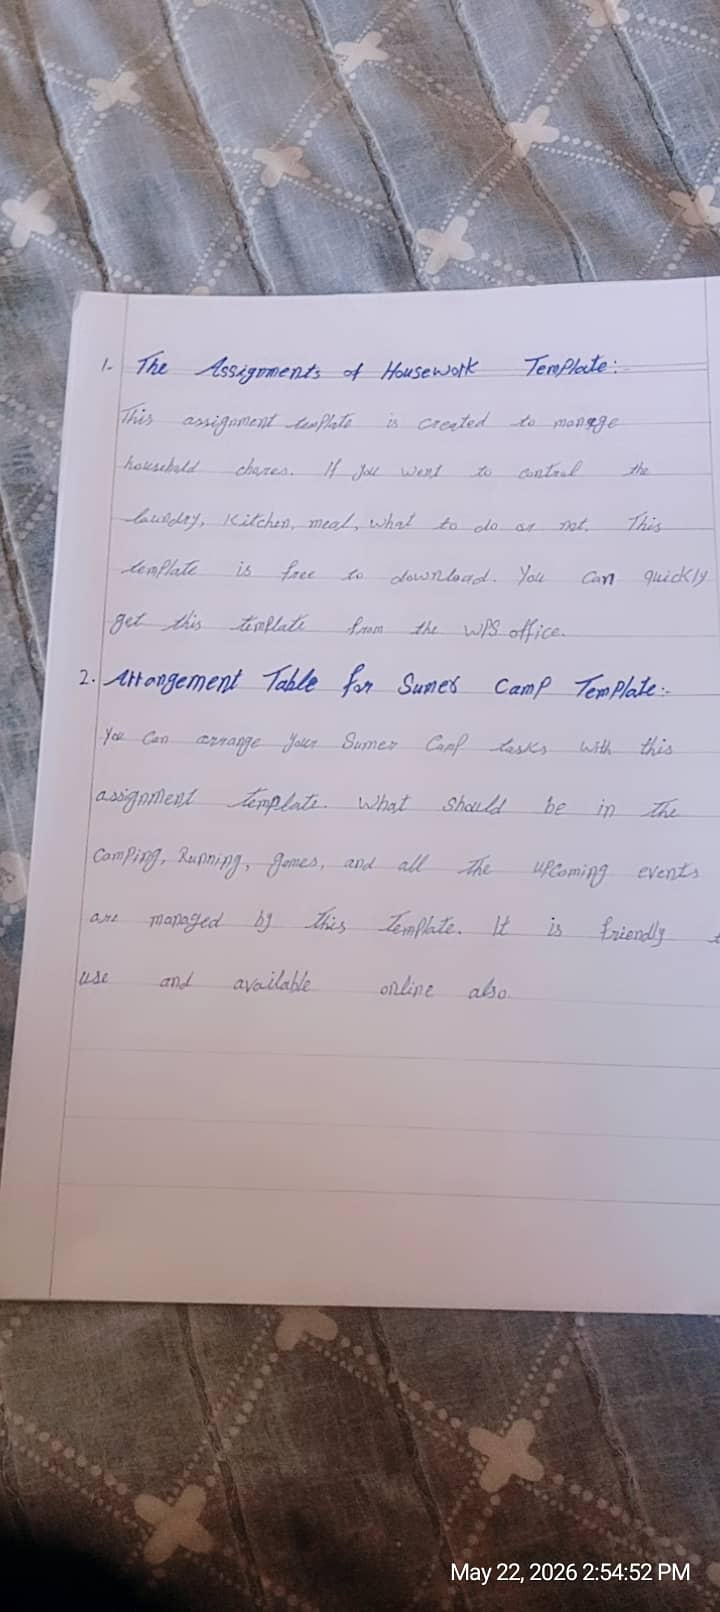 1. The Assignments of Housework Template:
This assignment template is created to manage
household chores. If you want to control the
laundry, Kitchen, meal, what to do or not. This
template is free to download. You can quickly
get this template from the WPS office.
2. Arrangement Table for Sumer Camp Template:-
You can arrange your Sumer Camp tasks with this
assignment template. What should be in the
Camping, Running, games, and all the upcoming events
are managed by this Template. It is friendly
use and available online also.
May 22, 2026 2:54:52 PM